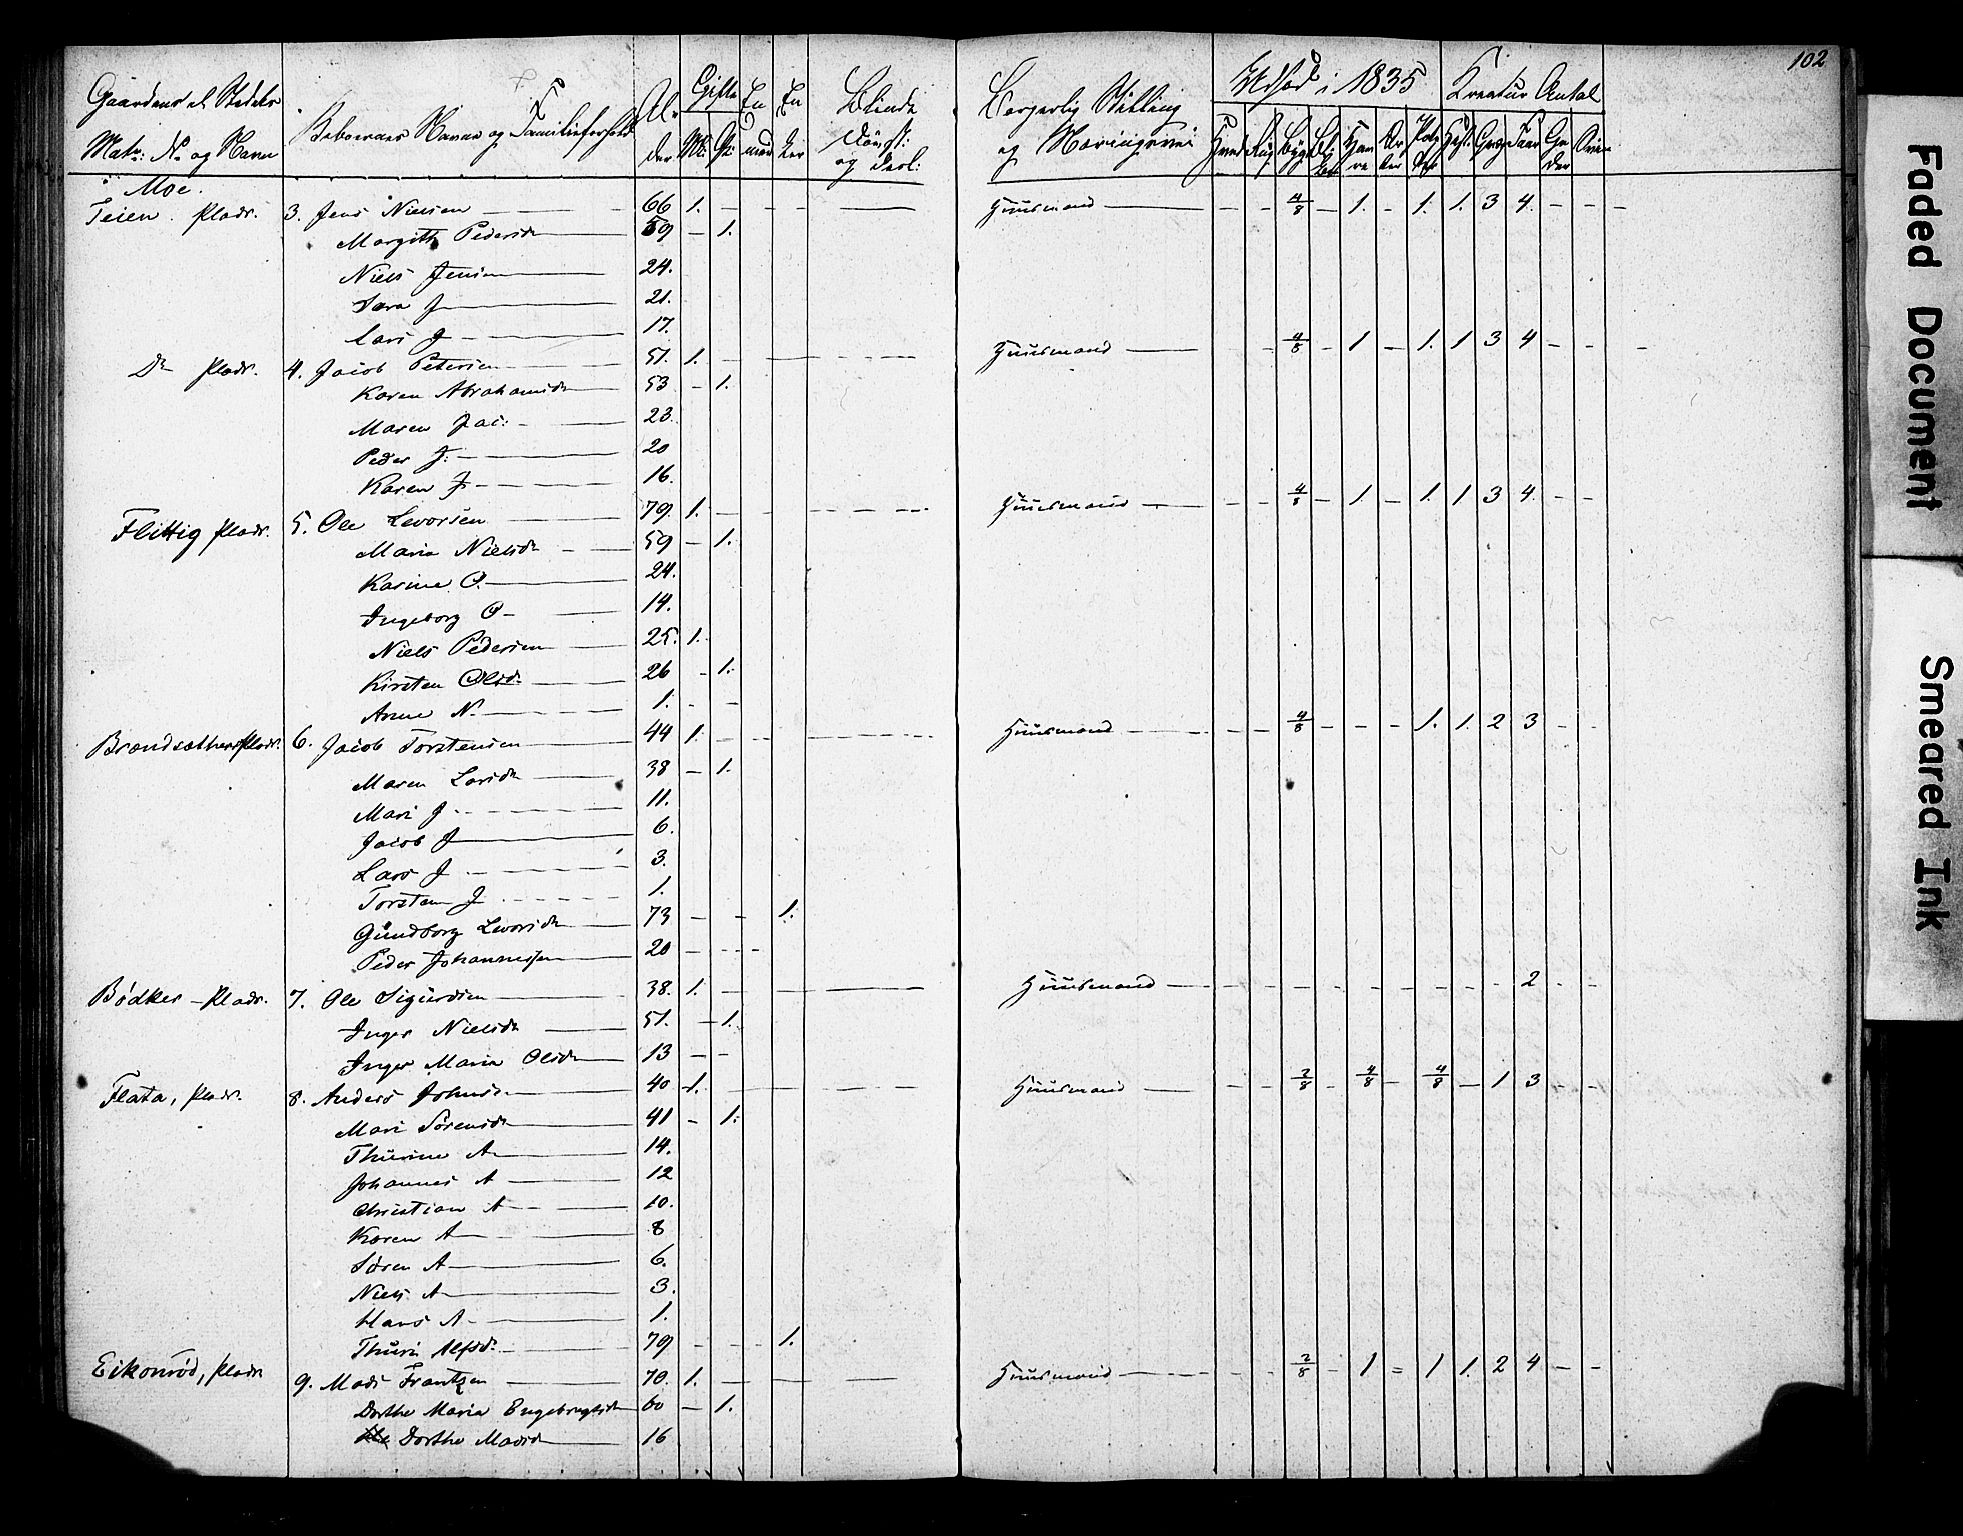 102
Gaardens el Stedets Matr: No og Navn | Beboernes Navne og Familieforhold | Alder | Gifte M: Q: | En mand | En ker | Blinde Døvst: og Dvol: | Borgerlig Stilling og Næringsvei | Udsæd i 1835 | Kreatur Antal
Hvede | Rug | Byg | Havre | Poteter | Hest: | Faar | Geder | Sviin
Moe.
Teien. Plads. 3. Jens Nielsen — 66 1. — — — — Huusmand — — 4/8 — 1. - 1. 1. 3 4. - - -
Margith Pedersdr — 59 — 1.
Niels Jensen — 24.
Sara J — 21.
Lars J — 17.
Do Plads. 4. Jacob Petersen — 51. 1. — — — Huusmand — - 4/8 - 1 - 1. 1 3 4 - - -
Karen Abrahamsdr — 53 - 1.
Maren Jac: - — 23.
Peder J: — 20
Karen J - — 16.
Flittig Plads. 5. Ole Levorsen — 79. 1. - — Huusmand — - - 4/8 - 1 - 1. 1 3 4. - -
Maria Nielsdr - — 59 — 1.
Karine O. — 24.
Ingeborg O - — 14.
Niels Pedersen — 25. 1.
Kirsten Olsdr — 26 - 1.
Anne N. — 1. - -
Brændsæther Plads. 6. Jacob Torstensen — 44 1. - — Huusmand — - - 4/8 - - - 1. 1. 2 3 - -
Maren Larsdr — 38 — 1.
Mari J - — 11.
Jacob J — 6.
Lars J - — 3.
Torsten J — 1.
Gundborg Levorsdr — 73 — - 1.
Peder Johannessen — 20 - - - -
Bødker - Plads. 7. Ole Sigurdsen — 38. 1. - — Huusmand — - - - - - - - - - 2 - -
Inger Nielsdr — 51. — 1.
Inger Maria Olsdr — 13 - -
Flata, Plads. 8. Anders Johnsen — 40 1. — — Huusmand — - - 2/8 - 4/8 - 4/8 — 1 3 - -
Mari Sørensdr — 41 - 1.
Thurine A — 14.
Johannes A — 12
Christian A — 10.
Karen A — 8
Søren A — 6.
Niels A — 3.
Hans A - — 1.
Thuri Alfsdr. — 79 - - - 1.
Eikonrød, Plads 9. Mads Frantzen — 70. 1. — — Huusmand — - - 2/8 - 1 = 1 1. 2 4 - -
Dorthe Maria Engebregtsdr — 60 — 1.
Dorthe Madsdr — 16
Faded Document
Smeared Ink